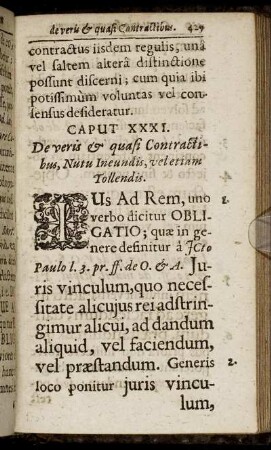 de veris & quasi Contractibus. 429
contractus iisdem regulis; unâ
vel saltem alterâ distinctione
possunt discerni; cum quia ibi
potissimùm voluntas vel con-
sensus desideratur.
CAPUT XXXI.
De veris & quasi Contracti-
bus, Nutu Ineundis, vel etiam
Tollendis.
IUS Ad Rem, uno 1.
verbo dicitur OBLI-
GATIO; quæ in ge-
nere definitur â Jcto
Paulo l. 3. pr. ff. de O. & A. Ju-
ris vinculum, quo neces-
sitate alicujus rei adstrin-
gimur alicui, ad dandum
aliquid, vel faciendum,
vel præstandum. Generis 2.
loco ponitur juris vincu-
lum,